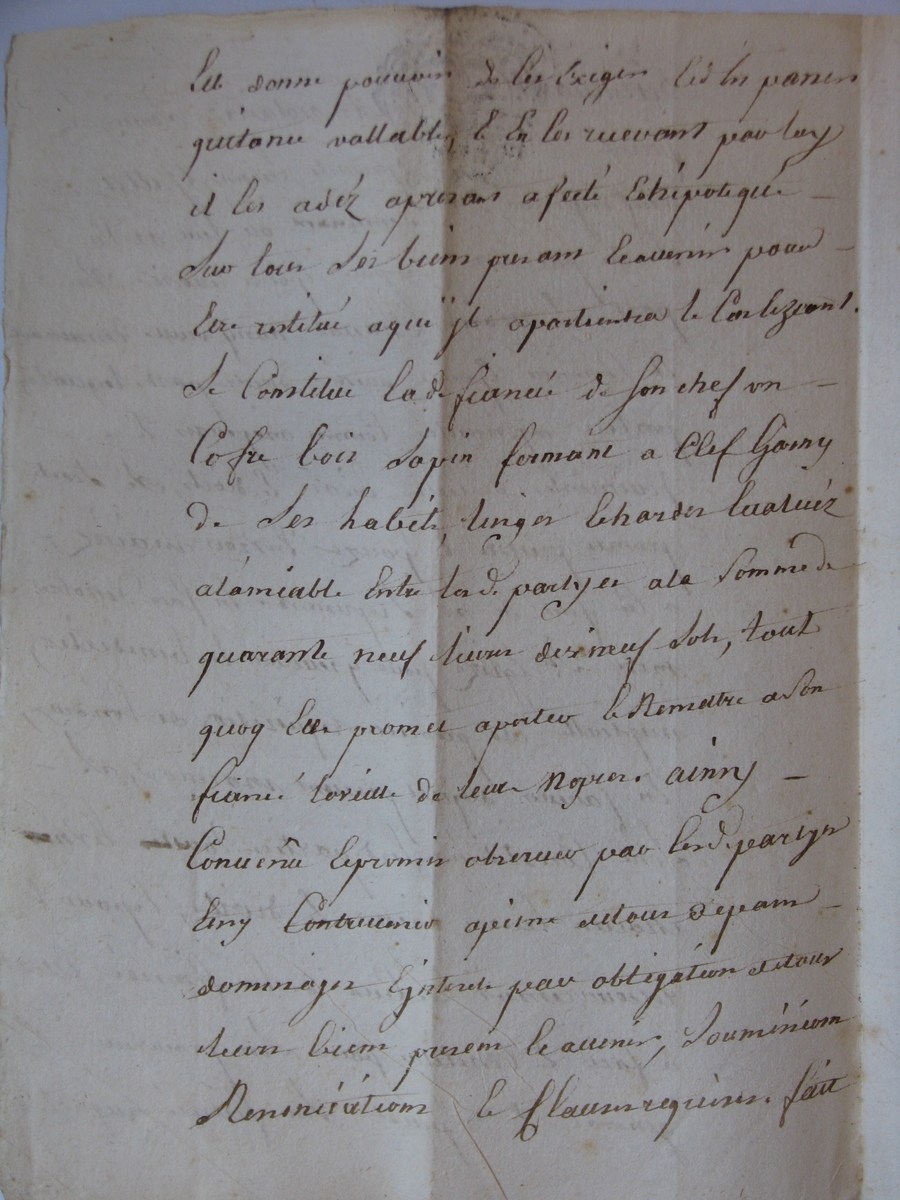 Luy donne pouvoir de les Exiger Et d'En passer
quitance vallable, E En les recevant par luy
il les adéz apresans afecté Ethipotequé
Sur tous Ses biens presans Eeavenir pour
Etre restitué aqui jl apartiendra Le Cas Ezeant.
Se Constitue lade fiancée de Son chef un
Cofre bois Sapin fermant a Clef Garny
de Ses habits, linges Eehardes Evaluéz
alamiable Entre lesd. partyes ala Somme de
quarante neuf livres dixneuf Sols, tout
quoy Elle promet aporter Ee Remettre a Son
fiancé laveille de leurs Nopces. ainsy
Convenu Eepromis observer par Lesd. partyes
Ensy Contrevenir apeine detous depans
dommages Ejnterets par obligation detous
leurs biens presens Eeavenir, Soumissions
Renonciations Ee Clauses requises. fait